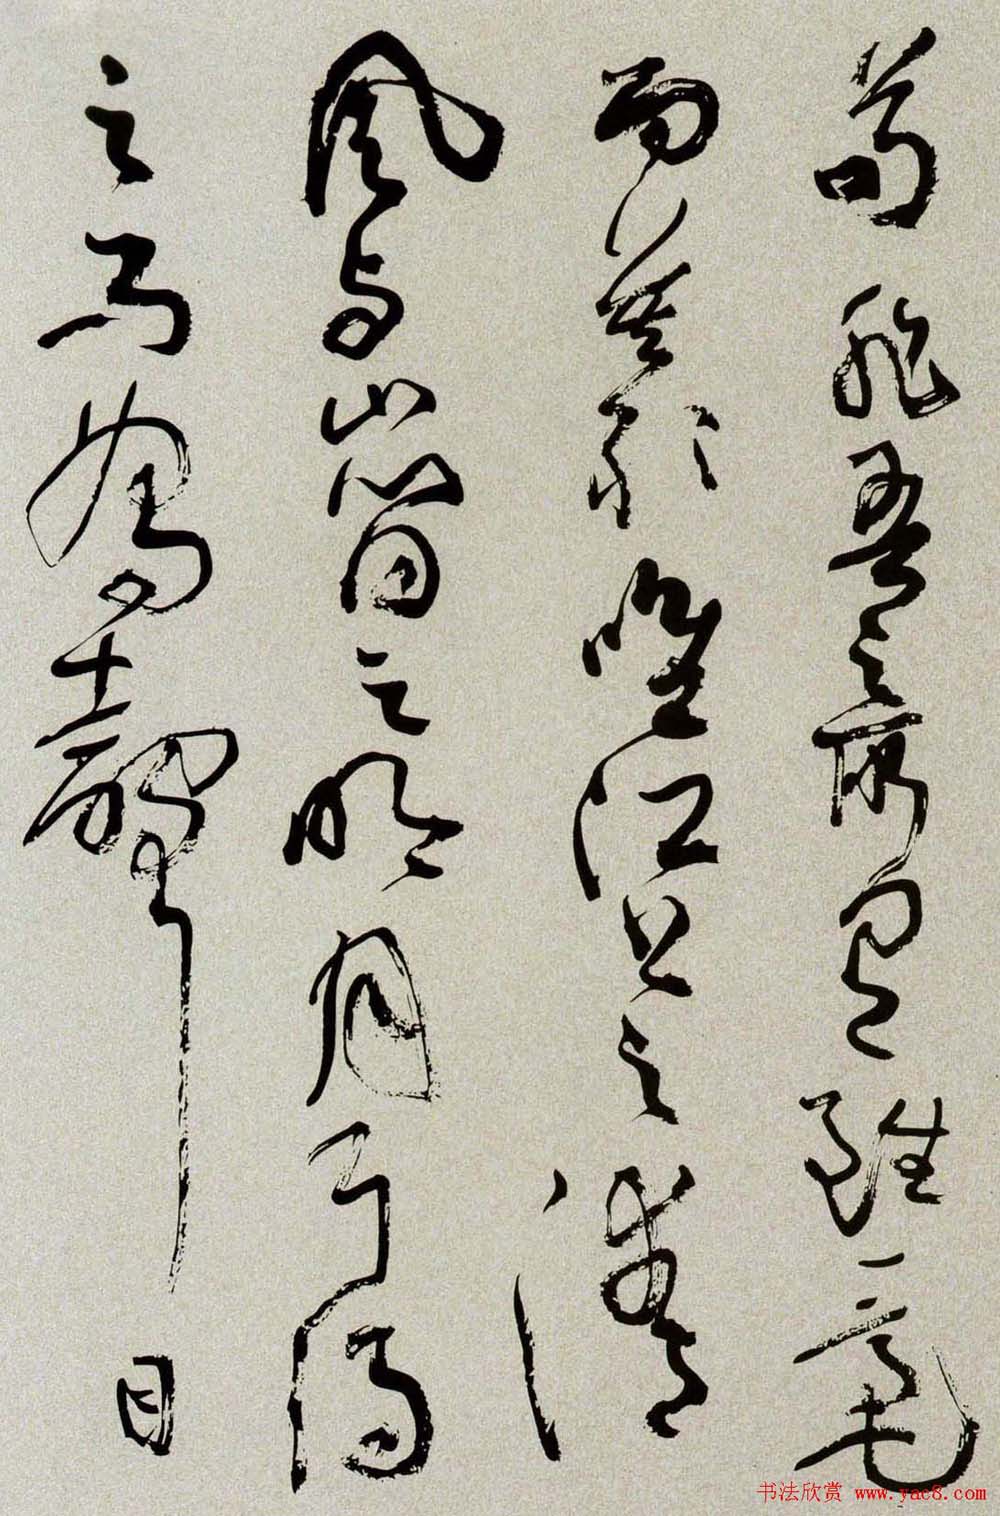 苟非吾之所有雖一毫
而莫取惟江上之清
風與山間之明月耳得
之而為聲目
书法欣赏 www.yac8.com